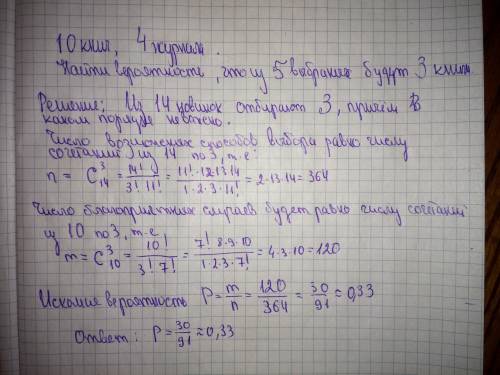 10 книг, 4 журнала.
Найти вероятность, что из 5 выбраных будут 3 книги
Решение: Из 14 новинок отбирают 3, причём в
каком порядке неважно.
Число возможных способов выбора равно числу
сочетаний из 14 по 3, т.е:
n = C³₁₄ = 14!/(3! 11!) = (11! · 12·13·14)/(1·2·3·11!) = 2·13·14 = 364
Число благоприятних случаев будет равно числу сочетаний
из 10 по 3, т.е,
m = C³₁₀ = 10!/(3! 7!) = (7! 8·9·10)/(1·2·3·7!) = 4·3·10 = 120
Искомая вероятность P = m/n = 120/364 = 30/91 ≈ 0,33
Ответ: P = 30/91 ≈ 0,33